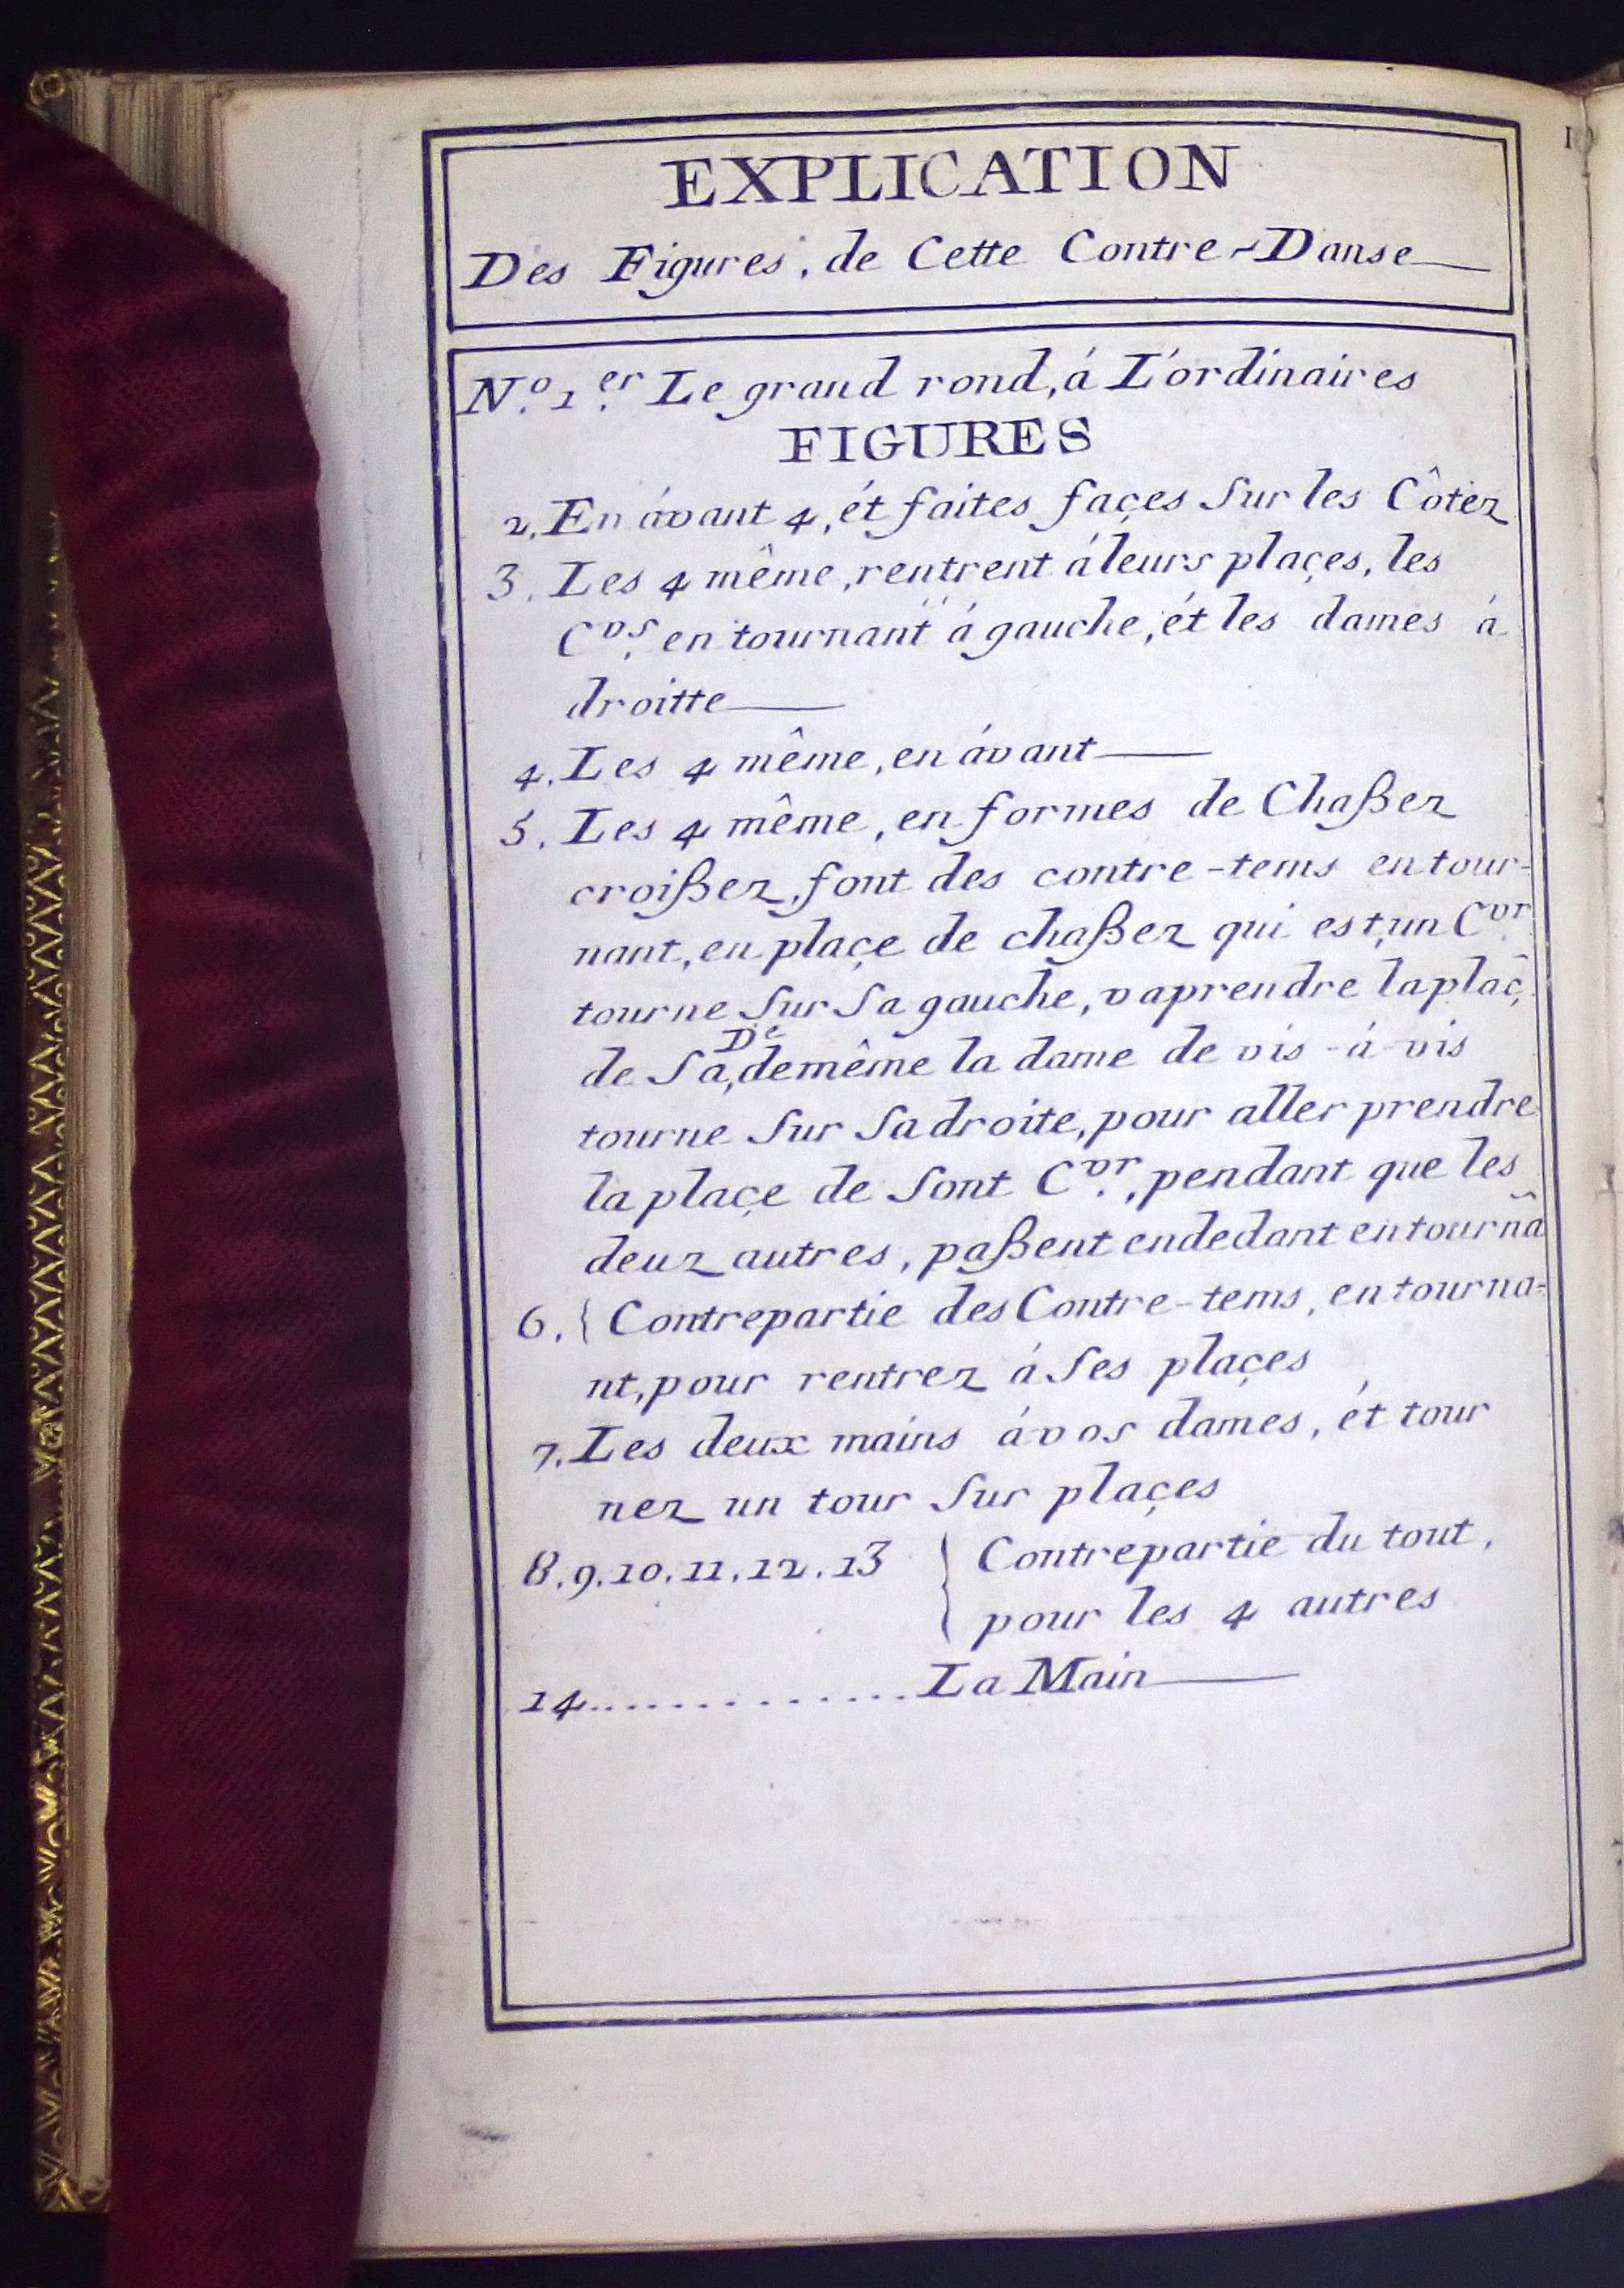 EXPLICATION
Des Figures, de Cette Contre-Danse
N.º 1.er Le grand rond, á L'ordinaires
FIGURES
2. En ávant 4, ét faites façes Sur les Côtez
3. Les 4 même, rentrent á leurs plaçes, les
C.vs en tournant á gauche, ét les dames á
droitte
4. Les 4 même, en ávant
5. Les 4 même, en formes de Chaßez
croißez, font des contre-tems en tour-
nant, en plaçe de chaßez qui est, un C.vr
tourne Sur Sa gauche, va prendre la plaç̃
de Sa De, de même la dame de vis-á-vis
tourne Sur Sa droite, pour aller prendre
la plaçe de Sont C.vr, pendant que les
deuz autres, paßent endedant en tournã
6. { Contrepartie des Contre-tems, en tourna=
nt, pour rentrez á Ses plaçes
7. Les deux mains á vos dames, ét tour
nez un tour Sur plaçes
8. 9. 10. 11. 12. 13 { Contrepartie du tout,
pour les 4 autres
14.............La Main